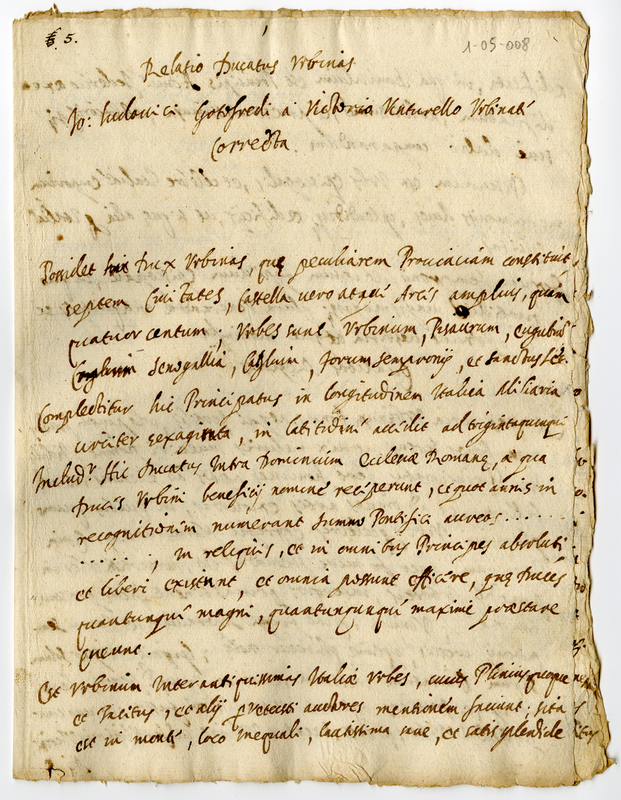 5.
1-05-008
Relatio Ducatus Urbinas
Jo: Ludovici Gotofredi a Victorio Venturello Urbinatè
Correcta
Possidet hic Dux Urbinas, quę peculiarem Prouinciam constituit
septem Ciuitates, Castella uero atquè Arcis amplius, quàm
quatuor centum; Urbes sunt Urbinium, Pisaurum, Eugubiũ
Senogallia, Callium, Forum sempronij, et Sanctus Leo.
Complectitur hic Principatus in longitudinem Italica Miliaria
circiter sexaginta, in latitudinè accidit ad trigintaquinquè
Includr. Hic Ducatus intra Dominium Ecclesiæ Romanę, a qua
Ducis Urbini beneficij nominè reciperunt, et quot annis in
recognitionim numerant summo Pontifici aureos ......
......, in reliquis, et in omnibus Principes absoluti
et liberi existunt, et omnia possunt efficere, quę Duces
quantunquè magni, quantunqunquè maximè præstare
queunt.
Est Urbinum inter antiquissimas Italiæ Urbes, cuius Plinius quoque
et Tacitus, et alij peruetusti auctores mentionem faciunt; sita
est in montè, loco inequali, lautissima sane, et satis splendide